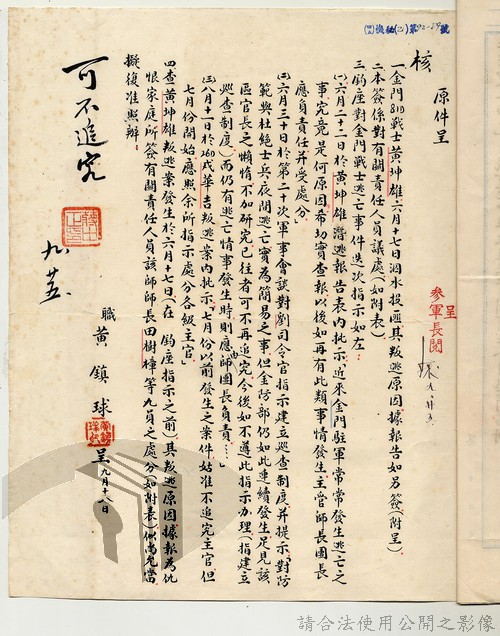 原件呈
核
一金門810戰士黃坤雄六月十七日泅水投匪其叛逃原因據報告如另簽(附呈)
二本簽係對有關責任人員議處(如附表)
三鈞座對金門戰士逃亡事件迭次指示如左:
(一)六月二十二日於黃坤雄潛逃報告表內批示「近來金門駐軍常常發生逃亡之
事究竟是何原因希切實查報以後如再有此類事情發生主管師長團長
應負責任并受處分」
(二)六月三十日於第二十次軍事會談對劉司令官指示建立巡查制度并提示「對防
範與杜絕士兵夜間逃亡實為簡易之事但金防部仍如此連續發生足見該
區官長之懶惰不加研究已往者可不再追究今後如不遵此指示辦理(指建立
巡查制度)而仍有逃亡情事發生時則應由師團長負責…」
(三)八月十一日於260戍華吉叛逃案內批示「七月份以前發生之案件姑准不追究主官但
七月份開始應照余所指示處分各級主官」
四查黃坤雄叛逃案發生於六月十七日(在 鈞座指示之前)其叛逃原因據報為仇
恨家庭所簽有關責任人員該師師長田樹樟等九員之處分如附表)似尚允當
擬復准照辦
職黃鎮球呈九月十八日
可不追究
九 廿五
呈
參軍長閱
九 廿五
請合法使用公開之影像